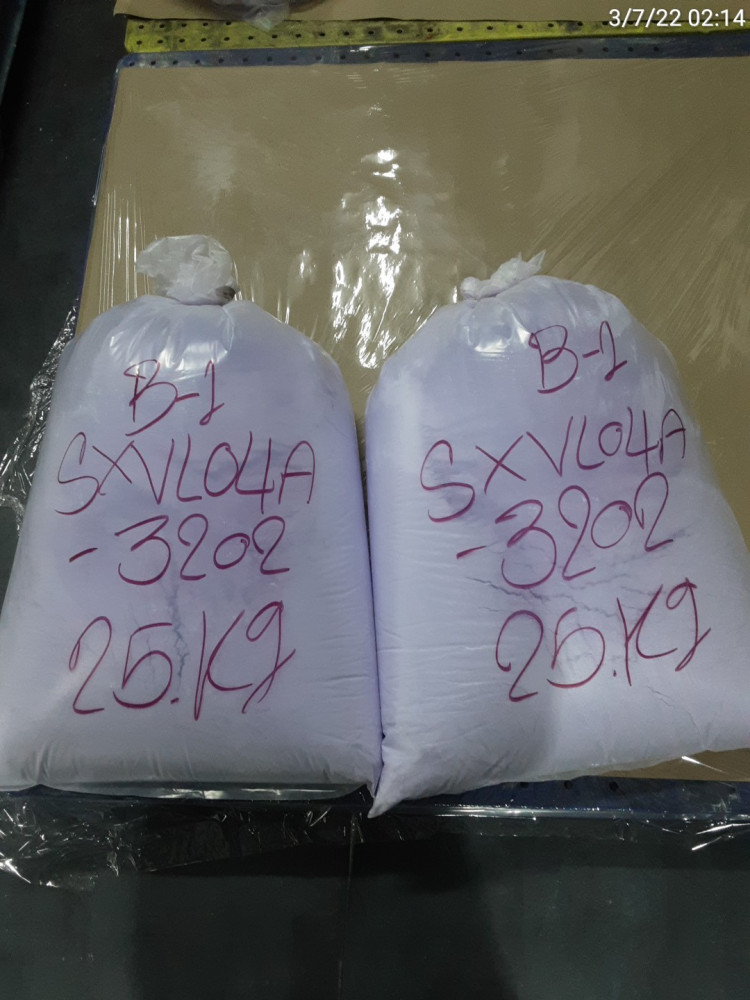 3/7/22 02:14
B-1
SXVL04A
-3202
25.Kg
B-1
SXVL04A
-3202
25.Kg